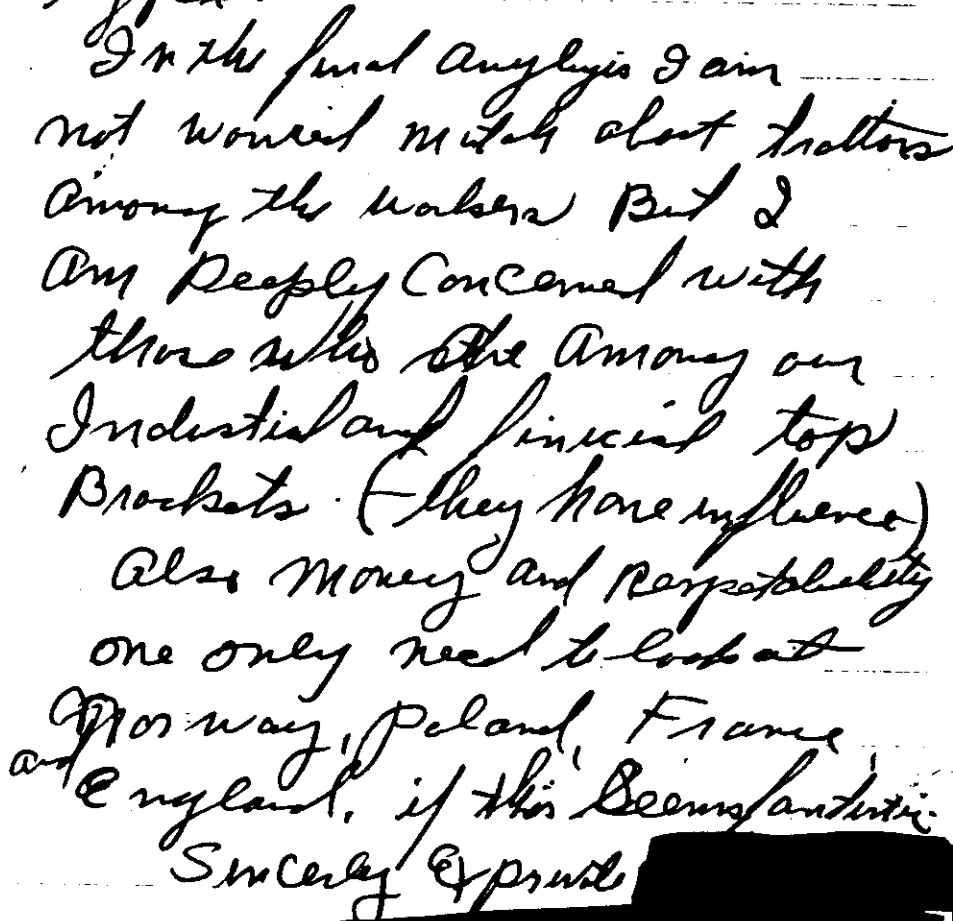 In the final Anylysis I am
not worried mutch abot traitors
Among the workers But I
Am Deeply Concerned with
those who are Among our
Industial and finicial top
Brackets. (they have influence)
Also Money and Respetability
one only need to look at
Norway, Poland, France,
and England, if this Seems fantistic.
Sincerly Ex private